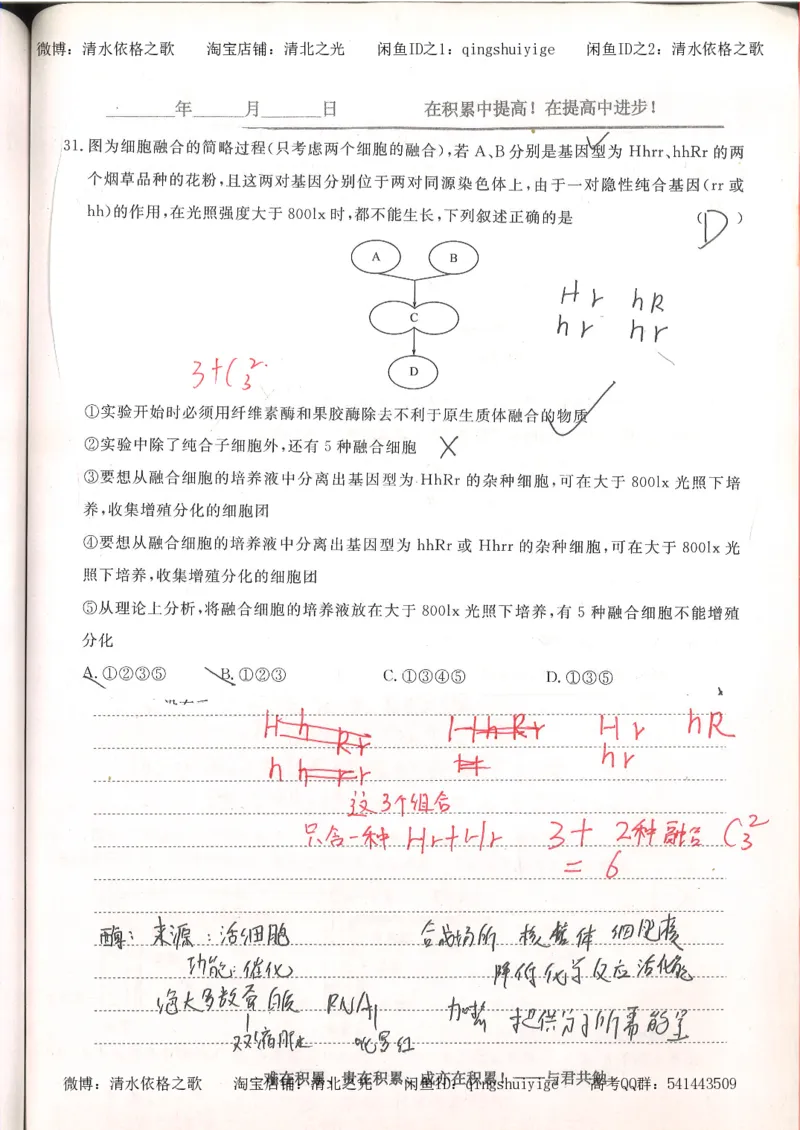 微博：清水依格之歌　淘宝店铺：清北之光　闲鱼ID之1：qingshuiyige　闲鱼ID之2：清水依格之歌
______年______月______日　在积累中提高！在提高中进步！
31. 图为细胞融合的简略过程(只考虑两个细胞的融合),若 A、B分别是基因型为 Hhrr、hhRr 的两
个烟草品种的花粉,且这两对基因分别位于两对同源染色体上,由于一对隐性纯合基因(rr 或
hh)的作用,在光照强度大于 800lx 时,都不能生长,下列叙述正确的是 ( D )
A B
C
D
Hr hR
hr hr
3+C₃²
①实验开始时必须用纤维素酶和果胶酶除去不利于原生质体融合的物质
②实验中除了纯合子细胞外,还有 5 种融合细胞
③要想从融合细胞的培养液中分离出基因型为 HhRr 的杂种细胞,可在大于 800lx 光照下培
养,收集增殖分化的细胞团
④要想从融合细胞的培养液中分离出基因型为 hhRr 或 Hhrr 的杂种细胞,可在大于 800lx 光
照下培养,收集增殖分化的细胞团
⑤从理论上分析,将融合细胞的培养液放在大于 800lx 光照下培养,有 5 种融合细胞不能增殖
分化
A. ①②③⑤　B. ①②③　C. ①③④⑤　D. ①③⑤
Hr hR
hr
这3个组合
只含一种 Hr+Hr 3+ 2种融合 C₃²
= 6
酶：来源：活细胞 合成场所 核糖体 细胞核
功能：催化 降低化学反应活化能
绝大多数蛋白质 RNA 加热 提供分子所需能量
双缩脲
难在积累，贵在积累，成亦在积累！——与君共勉
微博：清水依格之歌　淘宝店铺：清北之光　闲鱼ID：qingshuiyige　高考QQ群：541443509